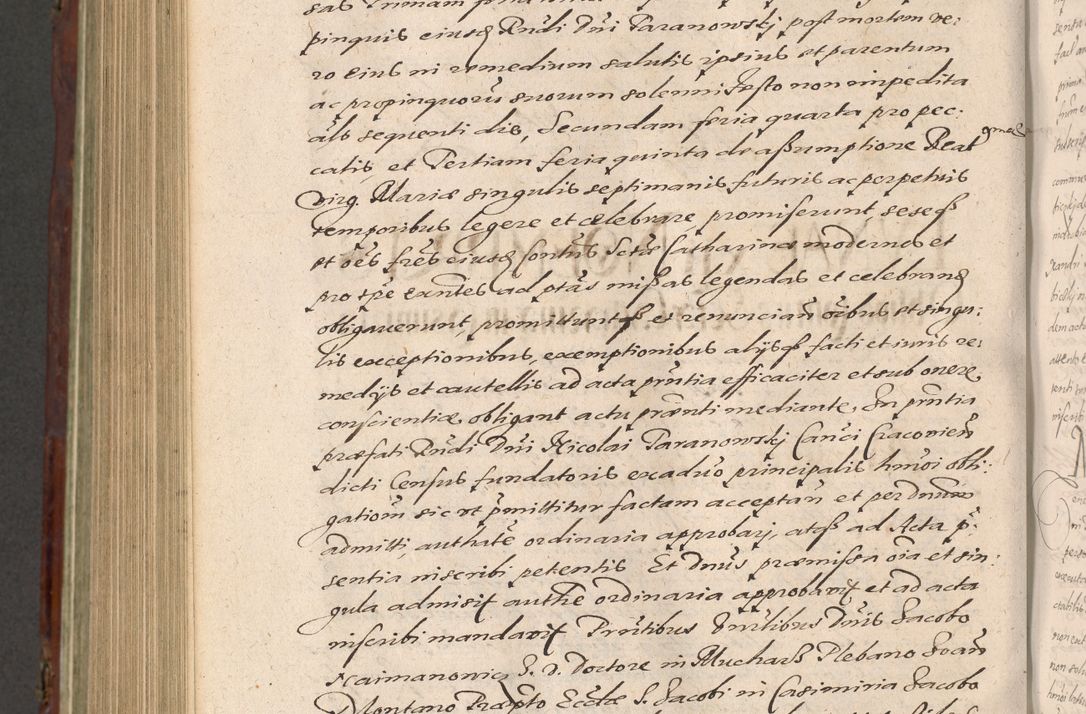 pinquis eiusq Rndi Dni Taranowskj post mortem ve:
ro eius in remedium salutis ipsius et parentum
ac propinquorū suorum solenni festo non impedita
als sequenti die, Secundam feria quarta pro pec:
catis, et Tertiam feria quinta de assumptione Beat
Virg. Mariæ singulis septimanis futuris ac perpetuis
temporibus legere et celebrare promiserunt, seseqꝫ
et oēs frēs eiusq Contūs Sctæ Catharinæ modernos et
pro tpe exntes ad ptas missas legendas et celebrand
obligauerunt, promittuntqꝫ et renunciarū oībus et singu:
lis exceptionibus, exemptionibus alijsqꝫ facti et iuris re:
medijs et cautellis ad acta prntia efficaciter et sub onere
conscientiæ obligant actu prænti mediante, In prntia
præfati Rndi Dni Nicolai Taranowskj Canci Cracovien
dicti Census fundatoris ex aduo principalis hmoi obli:
gationi sic ut pmittitur factam acceptan et per Dnum
admitti authte ordinaria approbarj, atqꝫ ad Acta p:
sentia inscribi petentis Et Dnus præmissa oīa et sin:
gula admisit authe ordinaria approbavit et ad acta
inscribi mandavit Prntibus Dnis Jacobo
Naimanowicz S. D. Doctore in Mucharz Plebano Joan
Montano Præpto Eccla S. Jacobi in Casimiria Jacobo